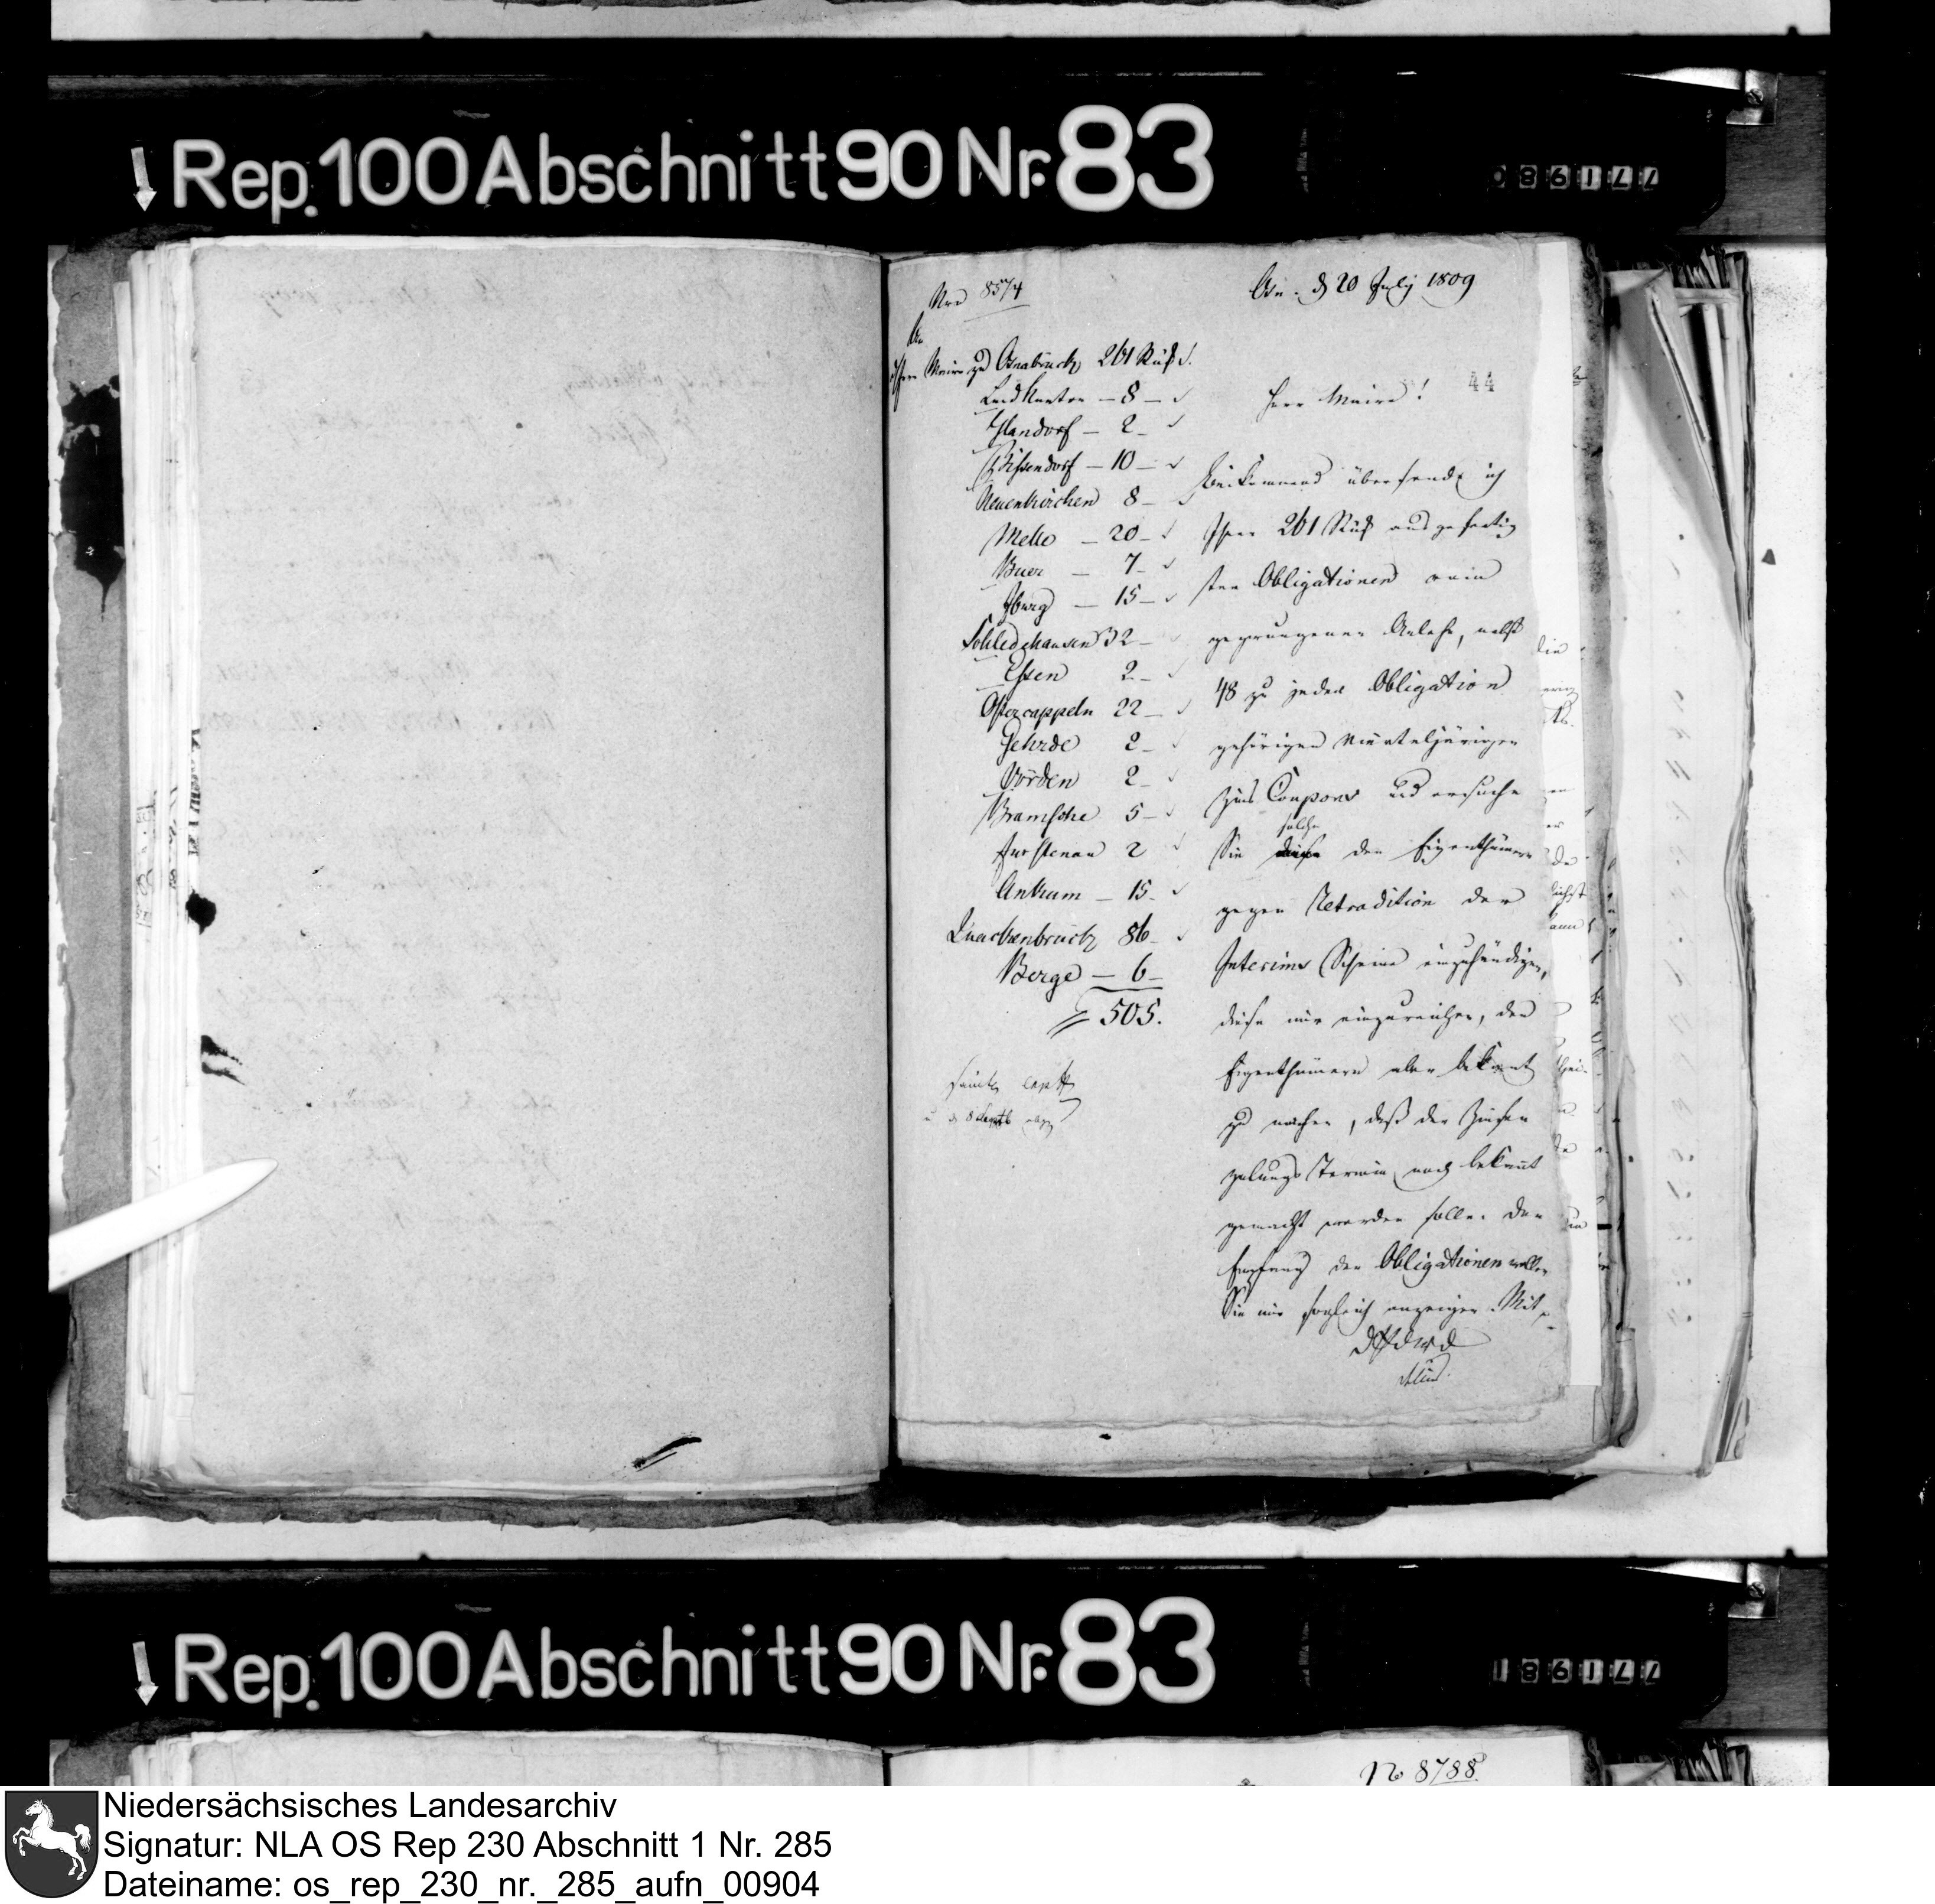 Rep. 100 Abschnitt 90 Nr. 83
086177
Nro 8574
Osn. d 20 July 1809
An
Herrn Maire zu Osnabrück 261 Stück
44
Land Kanton — 8 —
Herr Maire!
Glandorf — 2 —
Bissendorf — 10 —
Neuenkirchen 8 —
Melle — 20 —
Buer — 7 —
Iburg — 15 —
Schledehausen 32 —
Essen 2 —
Ostercappeln 22 —
Gehrde 2 —
Vörden 2 —
Bramsche 5 —
Furstenau 2
Ankum — 15
Quackenbruck 86
Berge — 6 —
505.
Beikommend übersende ich
Ihnen 261 Stück ausgefertig
ten Obligationen
gezwungenen Anlehe, nebst
48 zu jeder Obligation
gehörigen
Zins Coupons und ersuche
solche
Sie diese den Eigenthümern
gegen Retradition der
Interims Scheine einzuhändigen,
diese mir einzureichen, den
Eigenthümern aber bekant
zu machen, daß der Zinsen
zalungs Termin noch bekannt
gemacht werden solle. Den
Empfang der Obligationen wollen
Sie mir sogleich anzeigen. Mit
Rep. 100 Abschnitt 90 Nr. 83
186177
No 8788.
Niedersächsisches Landesarchiv
Signatur: NLA OS Rep 230 Abschnitt 1 Nr. 285
Dateiname: os_rep_230_nr._285_aufn_00904